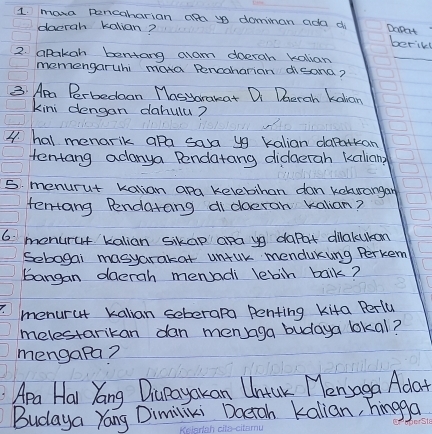 1. mata Pencaharian apa yg dominan ada di
daerah kalian?
2. apakah bentang alam daerah kalian
memengaruhi mata Pencaharian disana?
3. Apa Perbedaan Masyarakat Di Daerah Kalian
kini dengan dahulu?
4. hal menarik apa saja yg kalian dapatkan
tentang adanya Pendatang didaerah kalian?
5. menurut kalian apa kelebihan dan kekurangan
tentang Pendatang di daerah kalian?
6. menurut kalian sikap apa yg dapat dilakukan
sebagai masyarakat untuk mendukung Perkem
bangan daerah menjadi lebih baik?
7. menurut kalian seberapa Penting kita Perlu
melestarikan dan menjaga budaya lokal?
mengapa?
Apa Hal Yang Diupayakan Untuk Menjaga Adat
Budaya Yang Dimiliki Daerah Kalian, hingga
Dapat